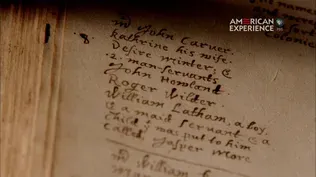 AMERICAN
EXPERIENCE
mr John Carver.
kathrine his wife.
Desire minter; &
2. man-servants
John Howland
Roger Wilder.
William Latham, a boy.
& a maid servant. & a
child yt was put to him
called, Jasper More
mr William